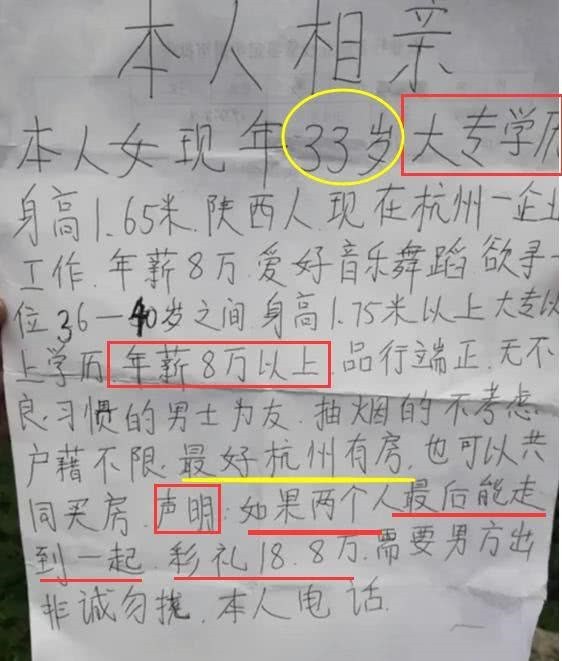 本人相亲
本人女现年33岁大专学历
身高1.65米.陕西人.现在杭州一企业
工作.年薪8万.爱好音乐舞蹈.欲寻一
位36一40岁之间.身高1.75米以上大专以
上学历.年薪8万以上.品行端正.无不
良.习惯的男士为友.抽烟的不考虑.
户藉不限.最好杭州有房.也可以共
同买房.声明:如果两个人最后能走
到一起.彩礼18.8万.需要男方出
非诚勿扰.本人电话.